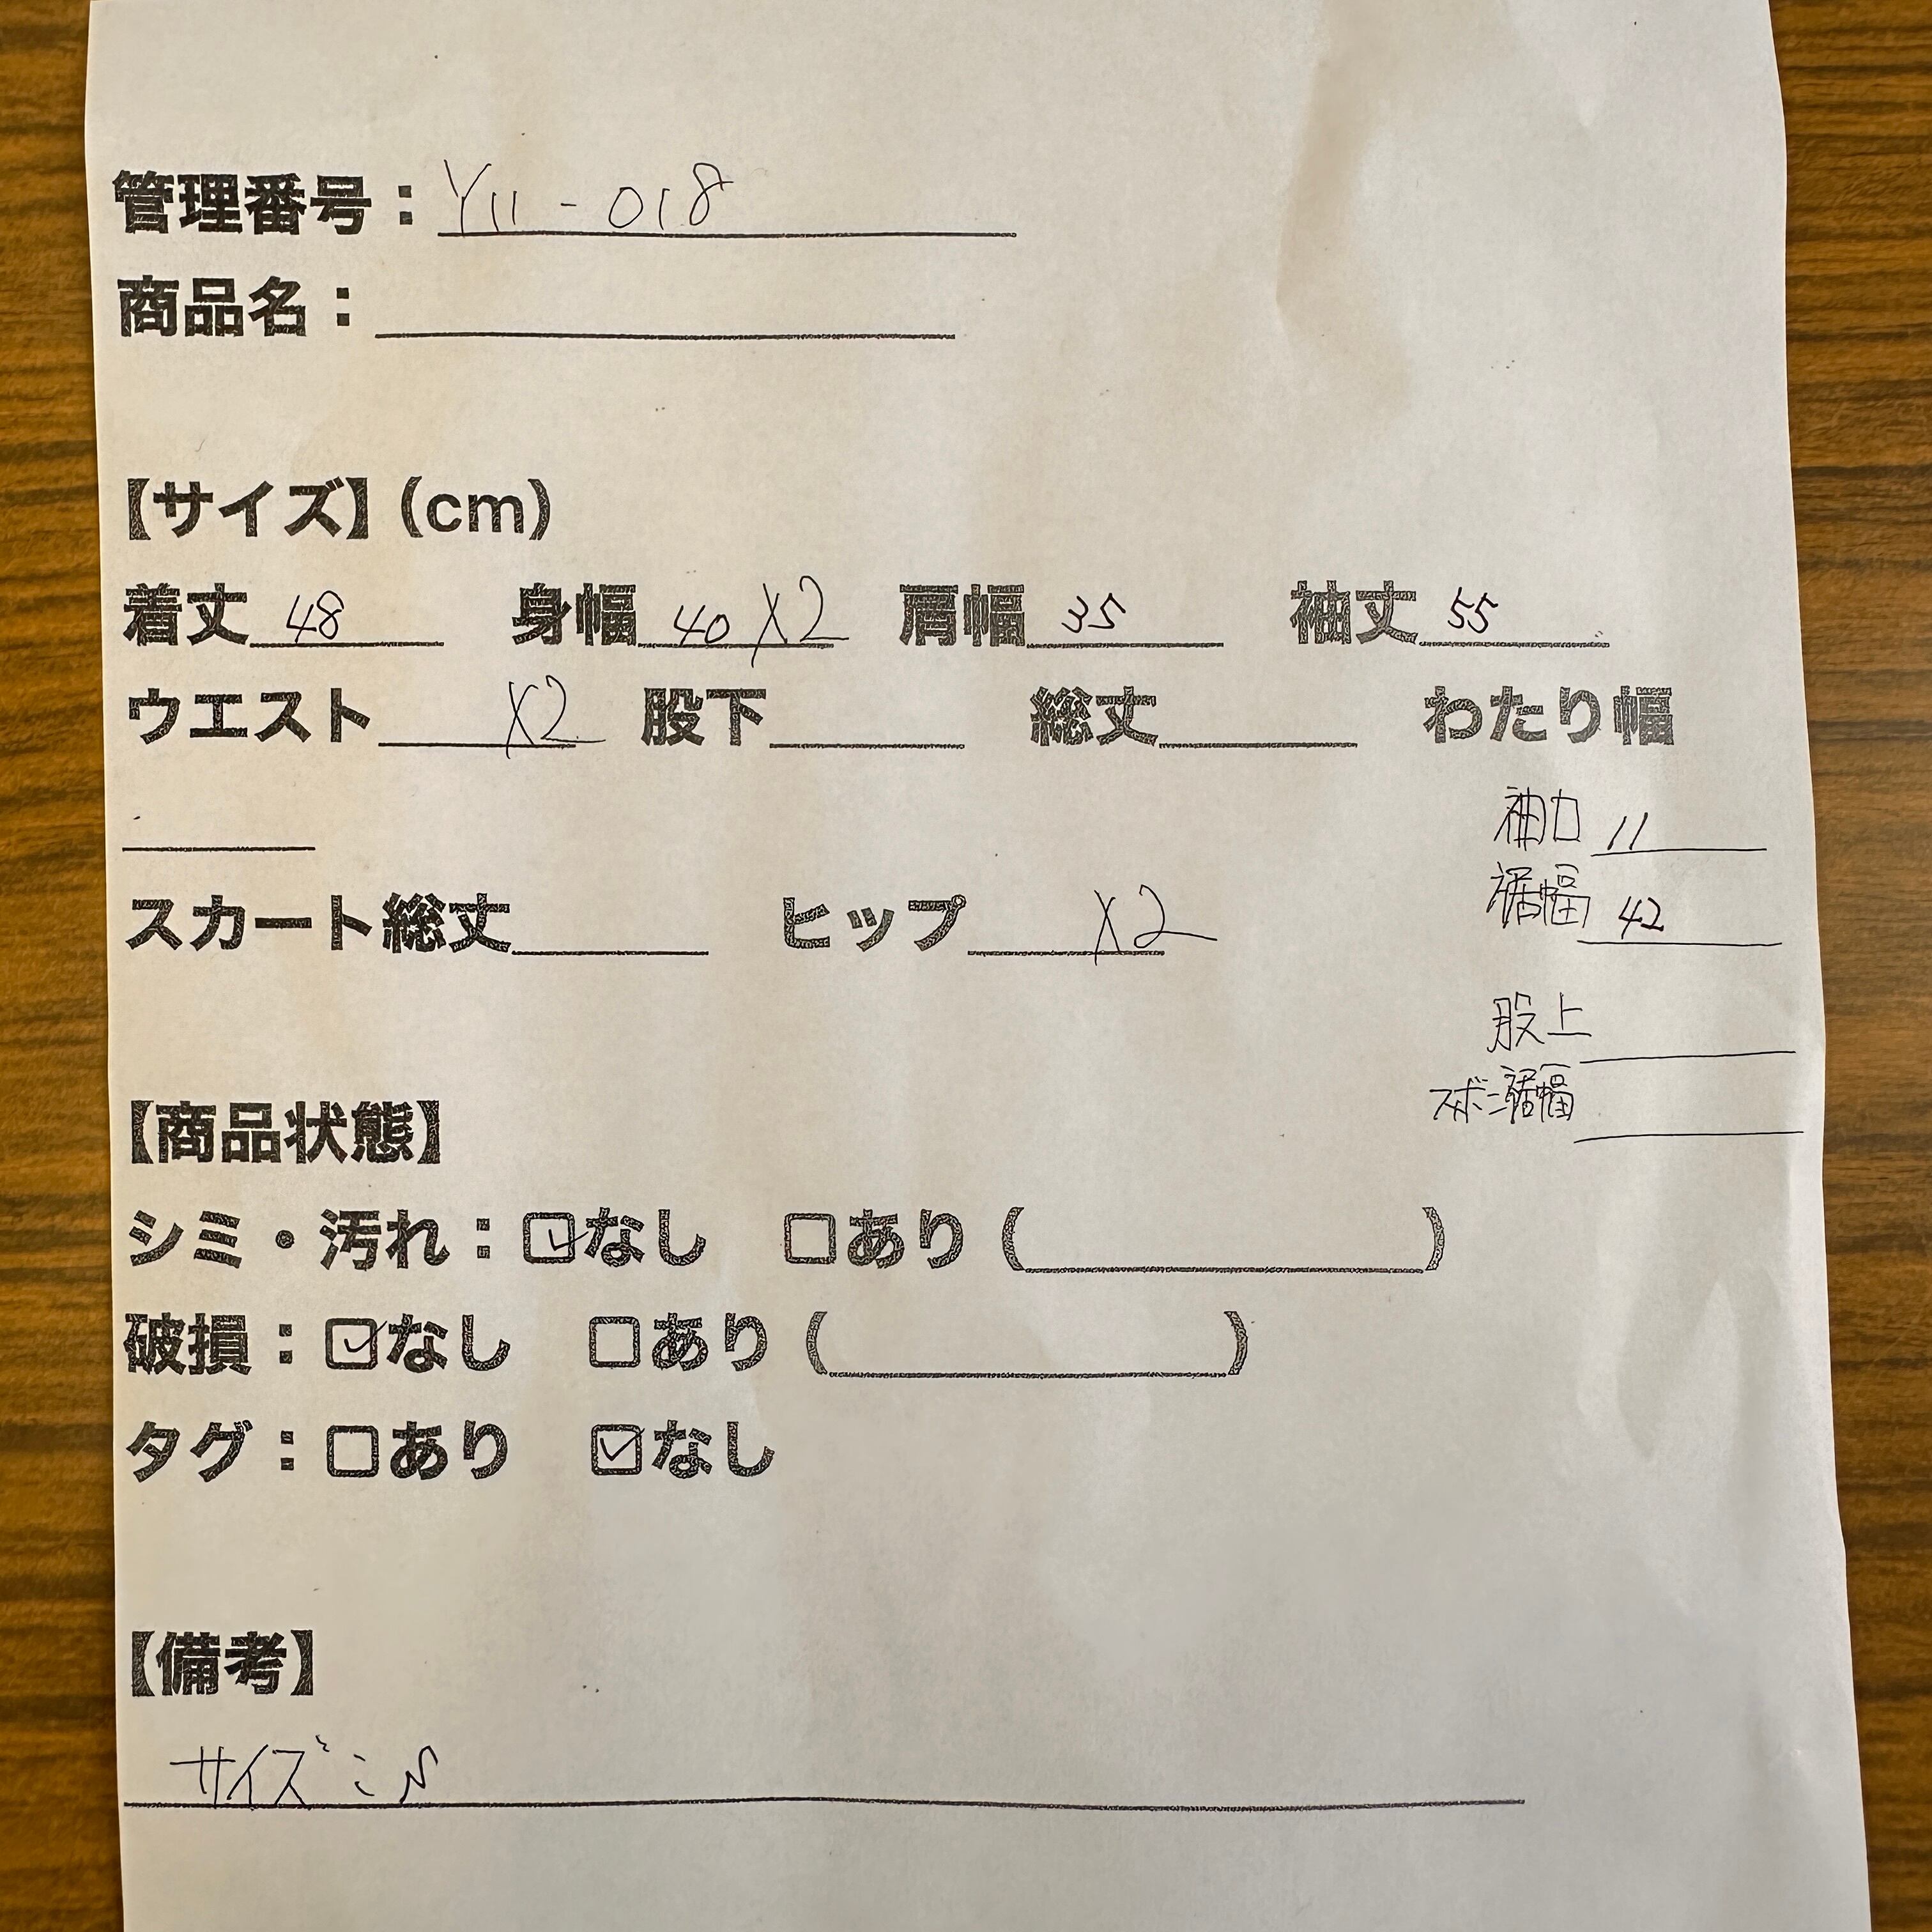 管理番号：Y11-018
商品名：
【サイズ】(cm)
着丈 48 身幅 40 X2 肩幅 35 袖丈 55
ウエスト X2 股下 総丈 わたり幅
袖口 11
裾幅 42
スカート総丈 ヒップ X2
股上
ズボン裾幅
【商品状態】
シミ・汚れ：☑なし □あり( )
破損：☑なし □あり( )
タグ：□あり ☑なし
【備考】
サイズ：